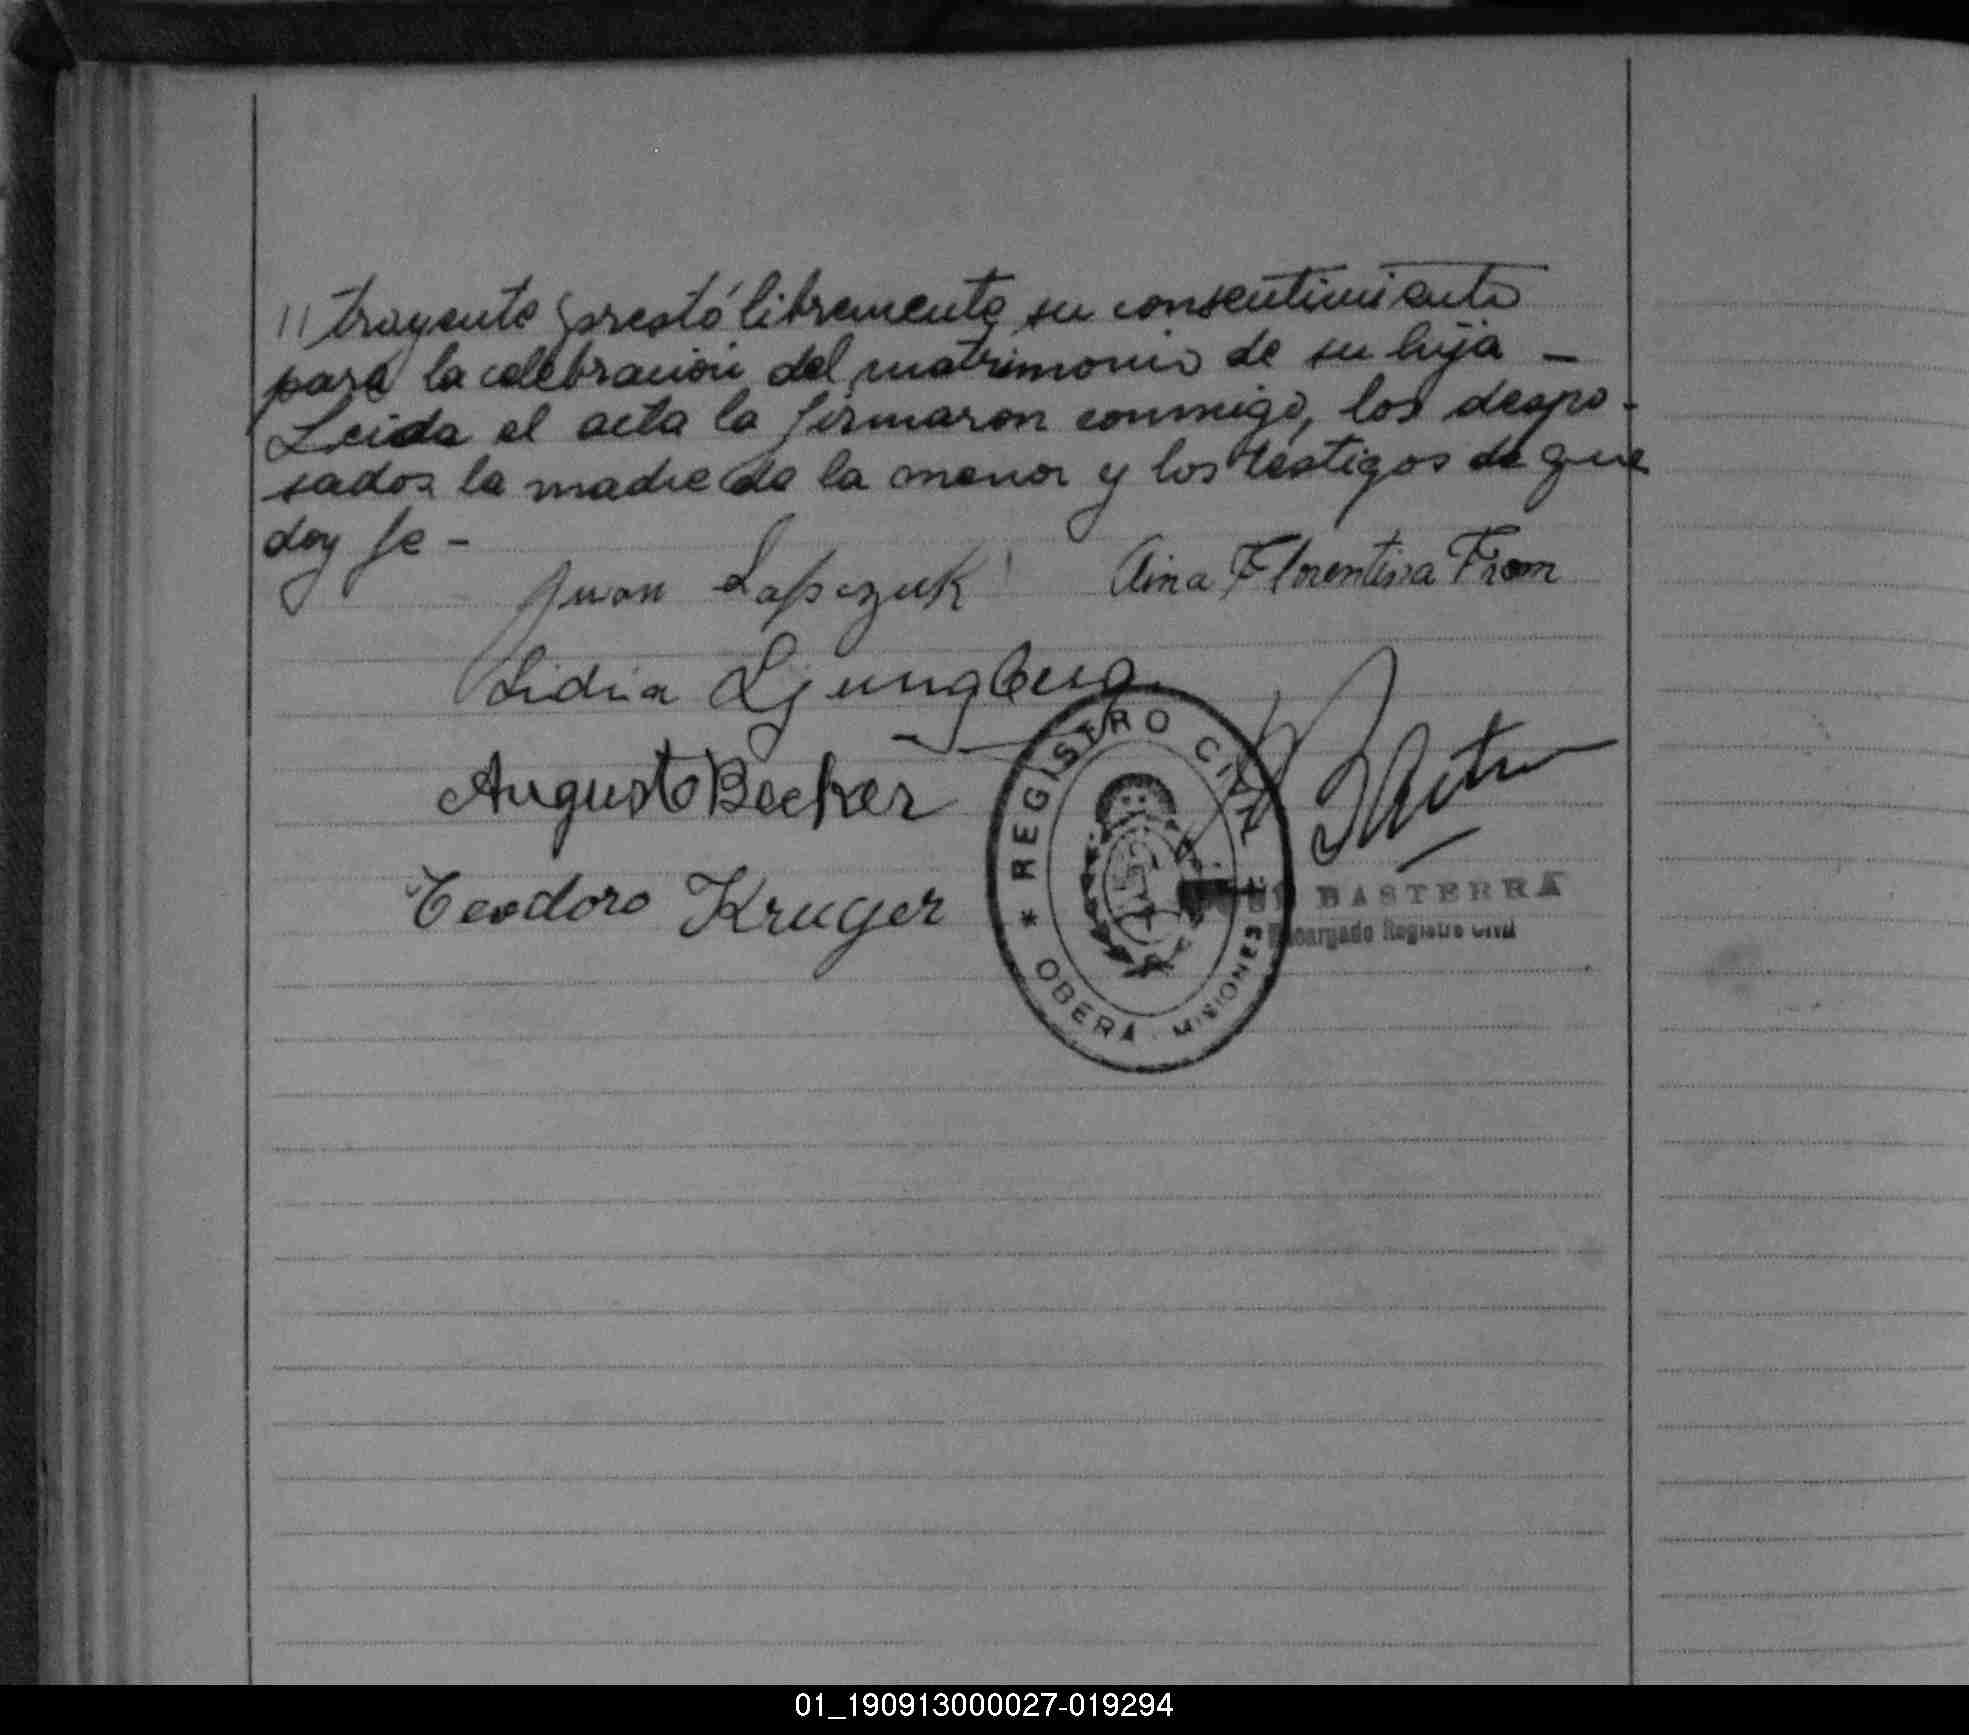 // trayente prestó libremente su consentimiento
para la celebración del matrimonio de su hija -
Leida el acta la firmaron conmigo, los despo-
sados la madre de la menor y los testigos de que
doy fe -
Juan Lapczuk Aina Florentina From
Lidia Ljungberg
Augusto Becker
Teodoro Kruger
* REGISTRO CIVIL *
OBERÁ - MISIONES
BASTERRA
Encargado Registro Civil
01_190913000027-019294